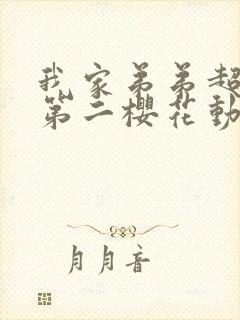 我家弟弟超
第二櫻花動
月月音